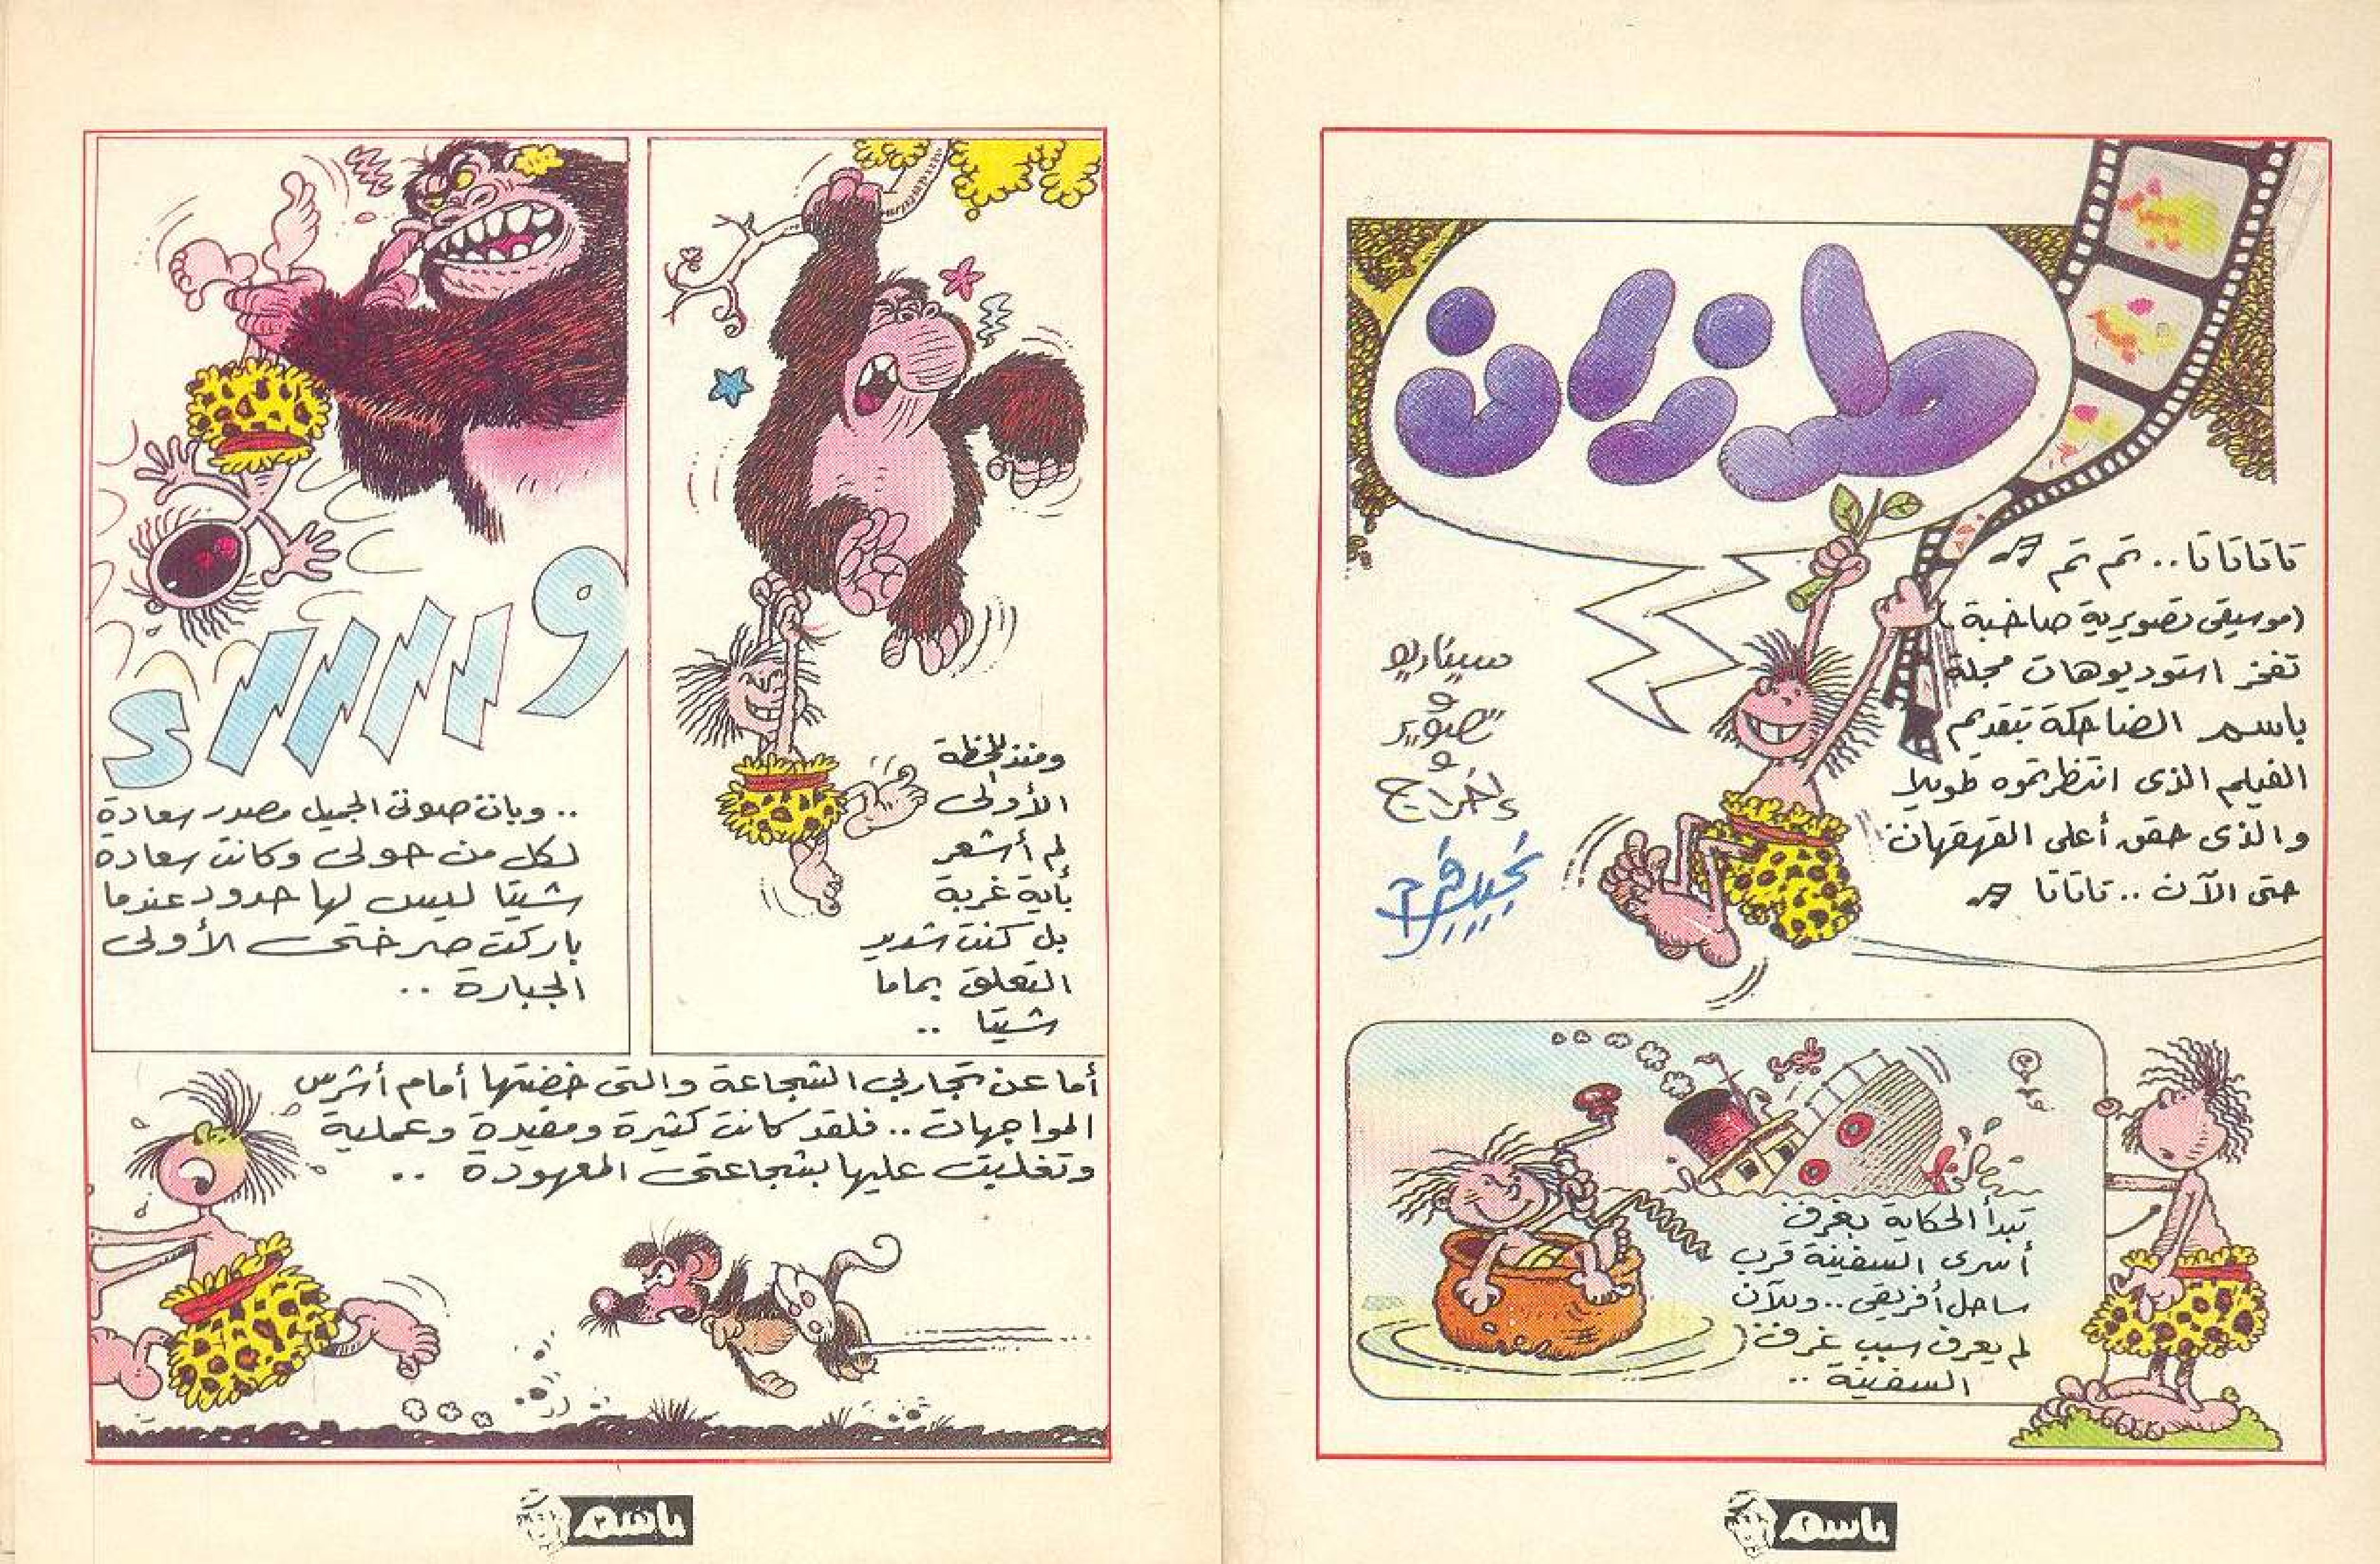 طرزان
تاتاتاتا.. تم تم
(موسيقى تصويرية صاخبة)
تفخر استوديوهات مجلة
باسم الضاحكة بتقديم
الفيلم الذى انتظرتموه طويلا
والذى حقق أعلى القهقهات
حتى الآن .. تاتاتا
سيناريو
و
تصوير
و
إخراج
تبدأ الحكاية بغرق
أسرى السفينة قرب
ساحل أفريقى .. وللآن
لم يعرف سبب غرق
السفينة ..
باسم
ومنذ اللحظة
الأولى
لم أشعر
بأية غربة
بل كنت شديد
التعلق بماما
شيتا ..
.. وبات صوتى الجميل مصدر سعادة
لكل من حولى وكانت سعادة
شيتا ليس لها حدود عندما
باركت صرختى الأولى
الجبارة ..
أما عن تجاربى الشجاعة والتى خضتها أمام أشرس
المواجهات .. فلقد كانت كثيرة ومفيدة وعملية
وتغلبت عليها بشجاعتى المعهودة ..
باسم